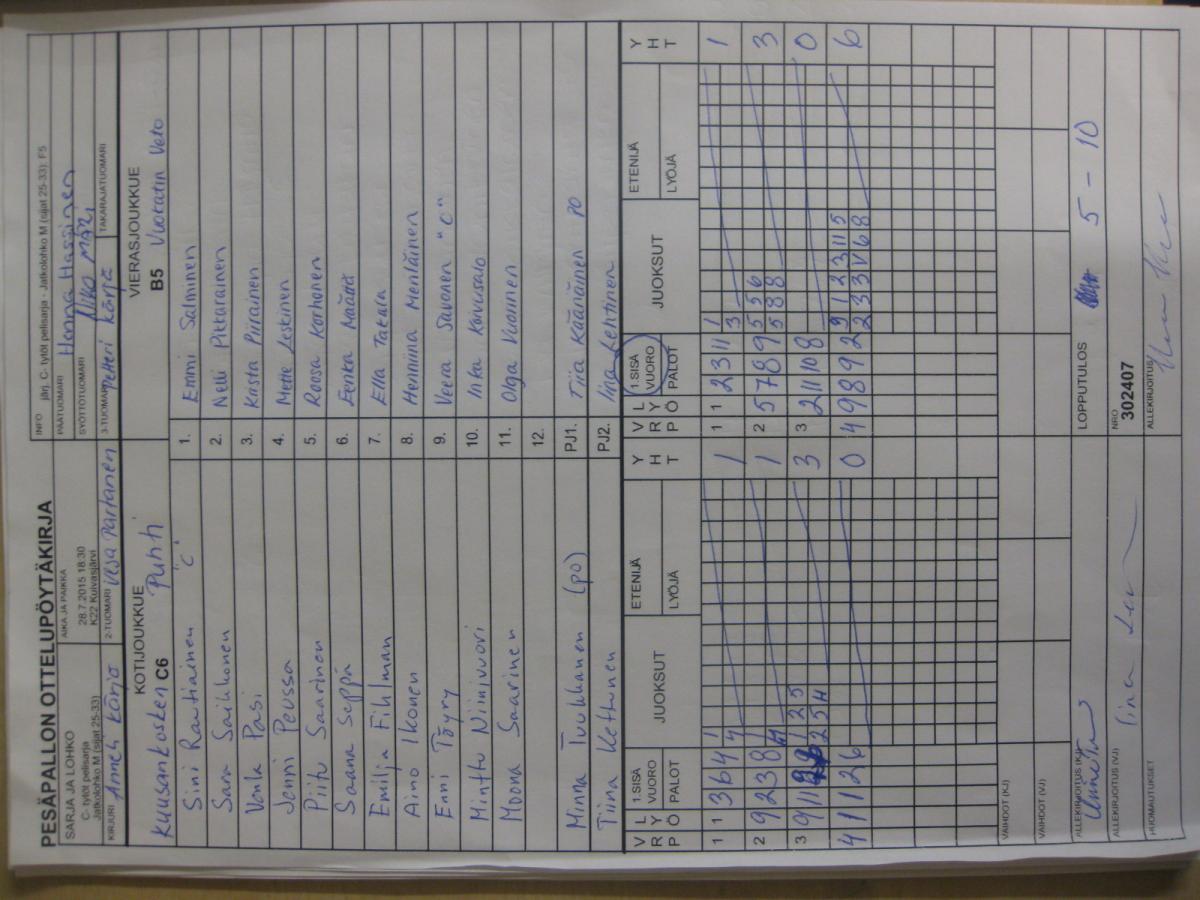 PESÄPALLON OTTELUPÖYTÄKIRJA
SARJA JA LOHKO
C- tytöt pelisarja
Jatkolohko M (sijat 25-33)
AIKA JA PAIKKA
28.7.2015 18:30
K22 Kuivasjärvi
INFO järj. C- tytöt pelisarja - Jatkolohko M (sijat 25-33): F5
PÄÄTUOMARI Henna Hassinen
SYÖTTÖTUOMARI Niko Mäzi
KIRJURI Anneli Körjö
2-TUOMARI Vesa Partanen
3-TUOMARI Petteri Körjä
TAKARAJATUOMARI
KOTIJOUKKUE
Kuusankosken C6 Puhti
VIERASJOUKKUE
B5 Vuokatin Veto
Sini Rautiainen "C" 1. Emmi Salminen
Sara Saikkonen 2. Nelli Pikkarainen
Venla Pasi 3. Krista Piirainen
Jenni Peussa 4. Mette Leskinen
Piitu Saarinen 5. Roosa Korhonen
Saana Seppä 6. Eerika Määttä
Emilia Fihlman 7. Ella Takala
Aino Ikonen 8. Henniina Meriläinen
Enni Töyry 9. Veera Savonen "C"
Minttu Niinivuori 10. Inka Koivusalo
Moona Saarinen 11. Olga Vuorinen
12.
Minna Tuukkanen (po) PJ1. Tiia Käänäinen PO
Tiina Kettunen PJ2. Iina Lehtinen
VRP LYÖ 1.SISÄ VUORO PALOT JUOKSUT ETENIJÄ LYÖJÄ YHT VRP LYÖ 1.SISÄ VUORO PALOT JUOKSUT ETENIJÄ LYÖJÄ YHT
1 1 3 6 4 1 4 1 1 1 2 3 11 1 3 1
2 9 2 3 8 1 2 5 7 8 9 5 5 6 5 8 8 3
3 9 11 1 2 5 2 5 H 3 3 2 11 10 8 0
4 1 1 2 6 0 0 4 9 8 9 2 9 1 2 3 11 5 2 3 3 V 6 8 6
VAIHDOT (KJ)
VAIHDOT (VJ)
ALLEKIRJOITUS (KJ)
LOPPUTULOS 5 - 10
ALLEKIRJOITUS (VJ)
NRO
302407
HUOMAUTUKSET
ALLEKIRJOITUS